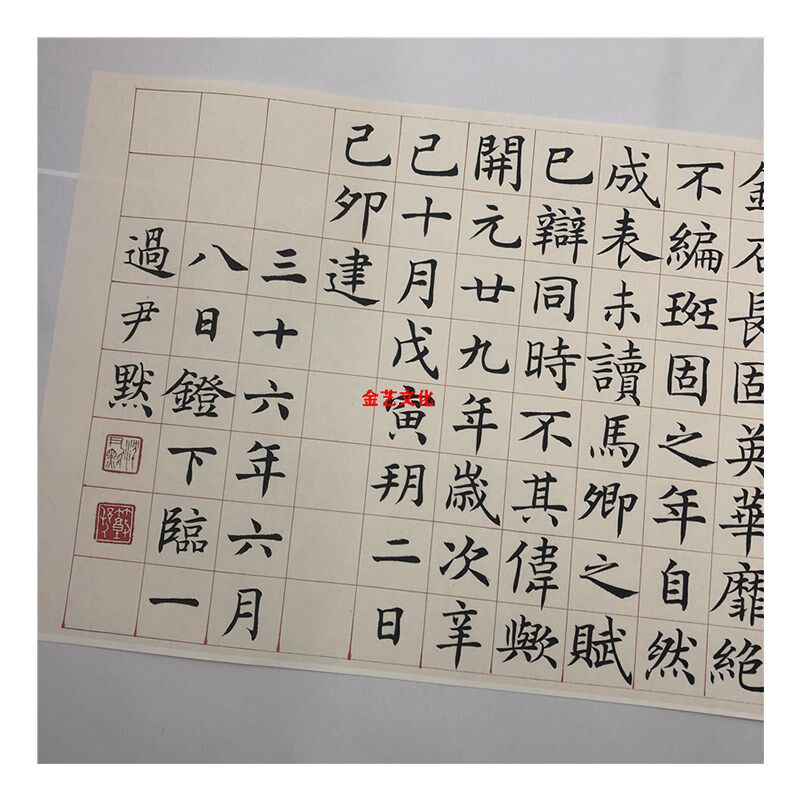 金石長固英華靡絕
不編班固之年自然
成表未讀馬卿之賦
已辯同時不其偉歟
開元廿九年歲次辛
巳十月戊寅朔二日
己卯建
三十六年六月
八日鐙下臨一
過尹默
沈尹默
金艺文化